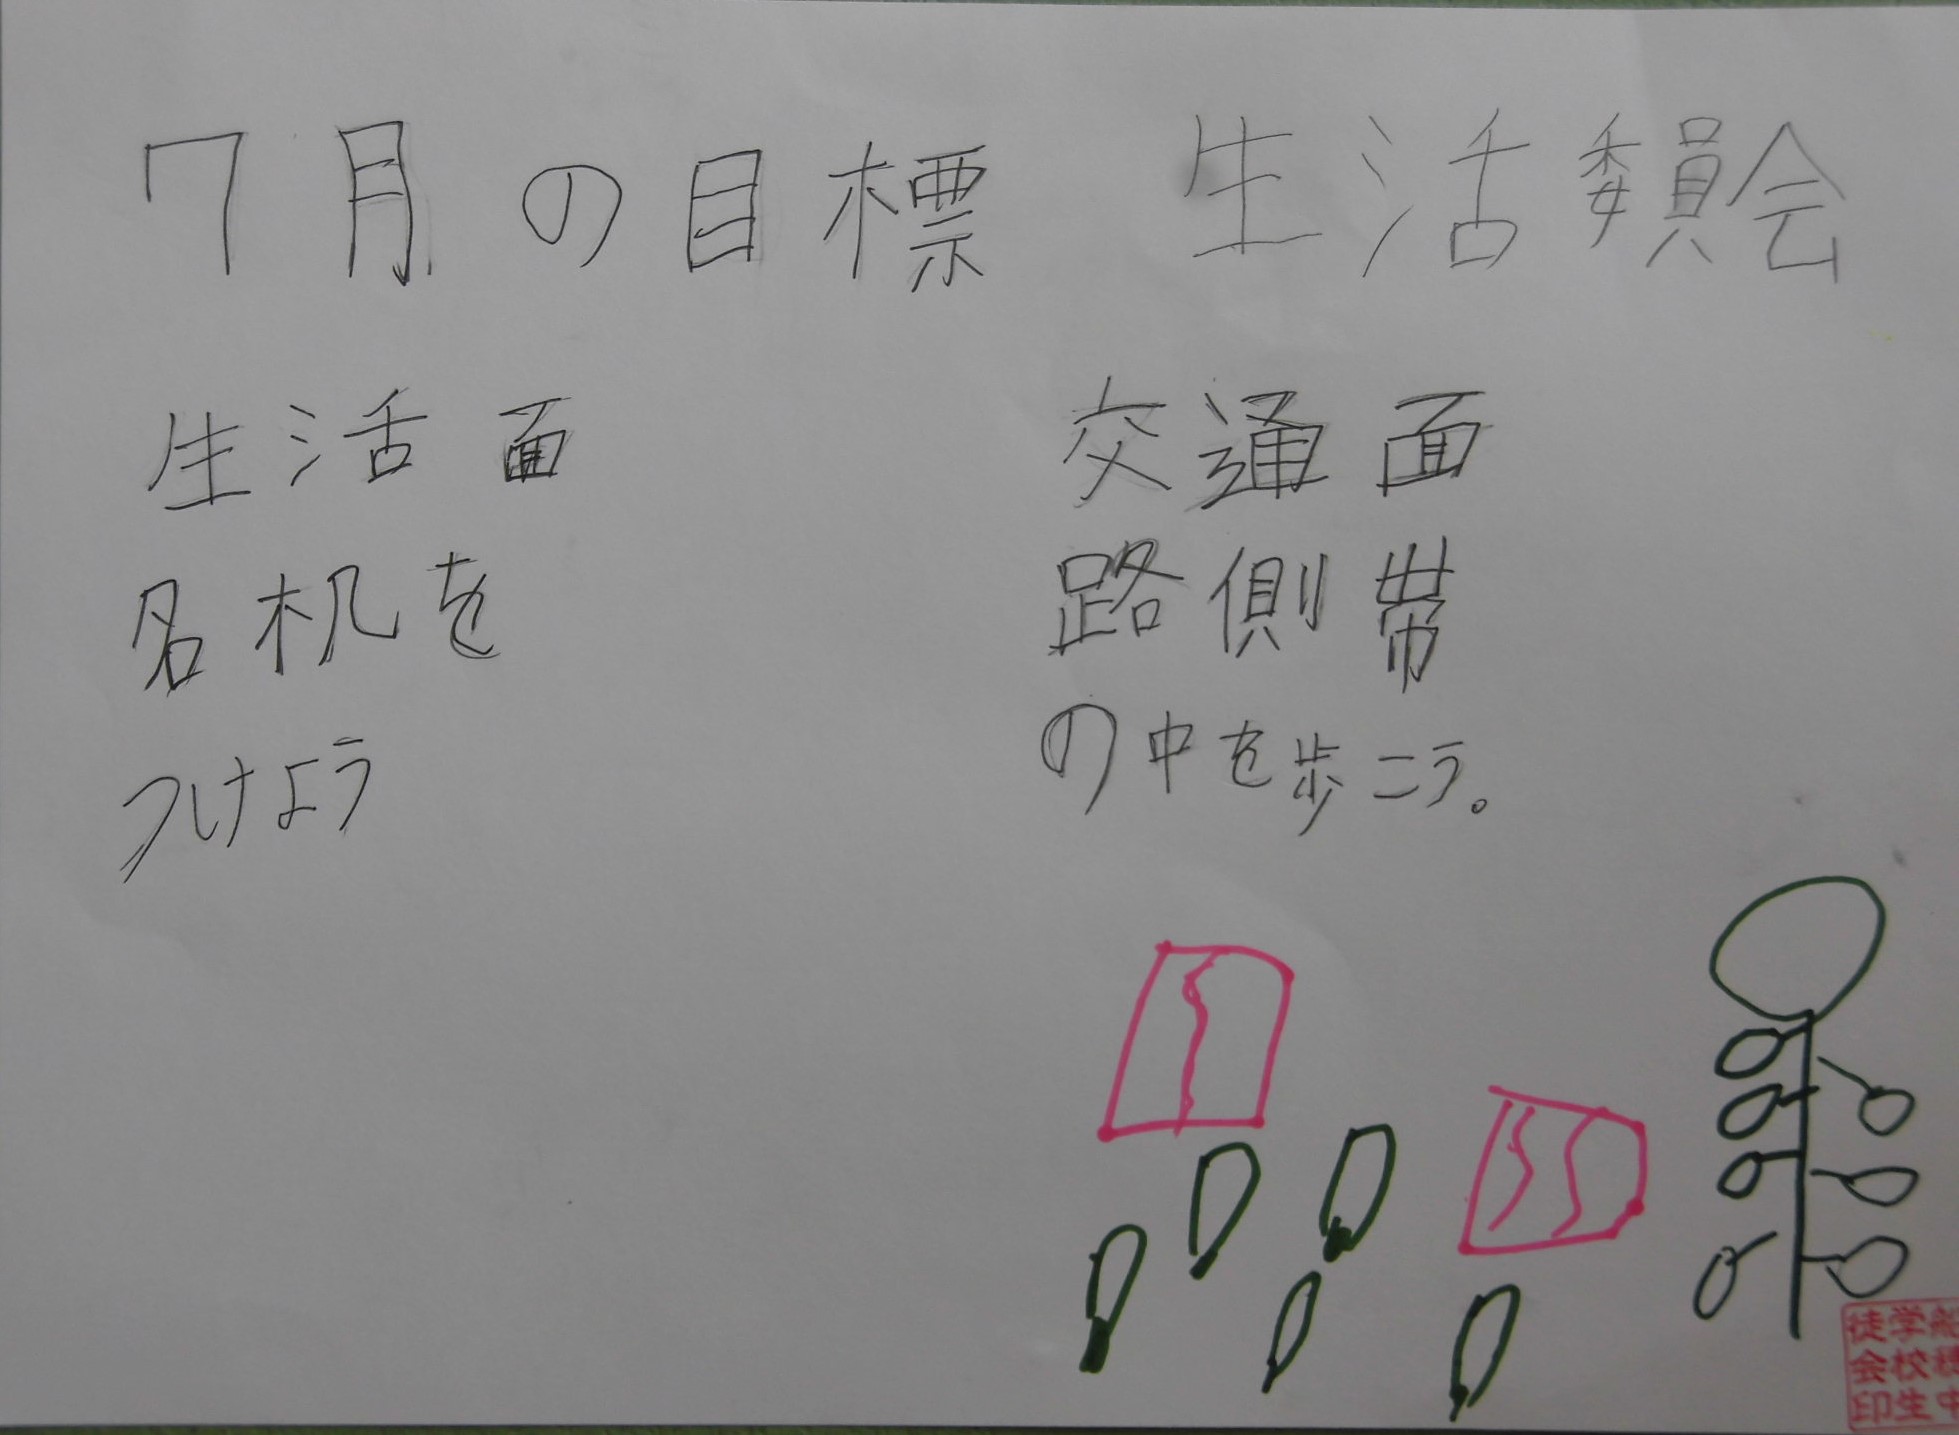 7月の目標 生活委員会
生活面
名札を
つけよう
交通面
路側帯
の中を歩こう。
学校生
徒会印